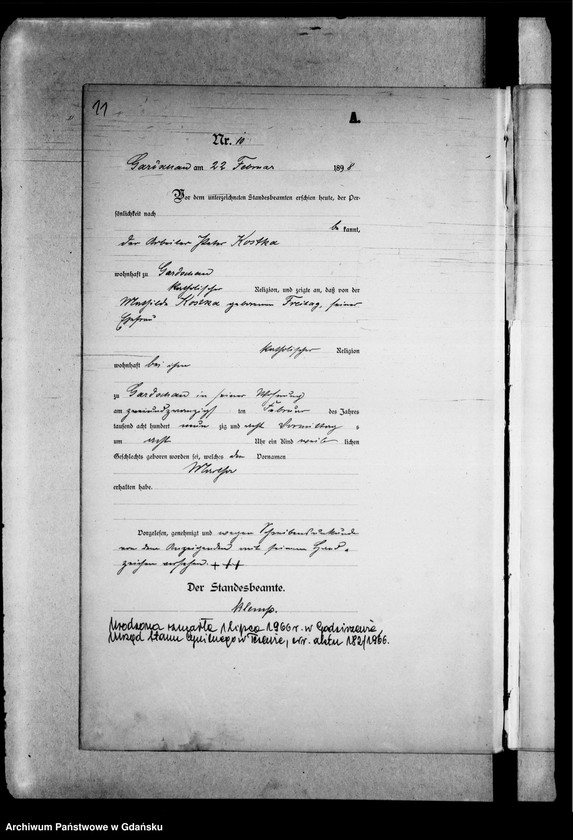 11
A.
Nr. 10
Gardschau am 22 Februar 1898
Vor dem unterzeichneten Standesbeamten erschien heute, der Per-
sönlichkeit nach
be kannt,
der Arbeiter Peter Kostka
wohnhaft zu Gardschau
katholischer Religion, und zeigte an, daß von der
Mathilde Kostka geborenen Freitag, seiner
Ehefrau
katholischer Religion
wohnhaft bei ihm
zu Gardschau in seiner Wohnung
am zweiundzwanzigsten Februar des Jahres
tausend acht hundert neun zig und acht Vormittags
um acht Uhr ein Kind weib lichen
Geschlechts geboren worden sei, welches den Vornamen
Martha
erhalten habe.
Vorgelesen, genehmigt und wegen Schreibensunkunde
von dem Anzeigenden mit seinem Hand-
zeichen versehen. +++
Der Standesbeamte.
Klemp.
Urodzona zmarła 1 lipca 1966 r. w Godziszewie
Urząd Stanu Cywilnego w Tczewie, nr. aktu 182/1966.
Archiwum Państwowe w Gdańsku